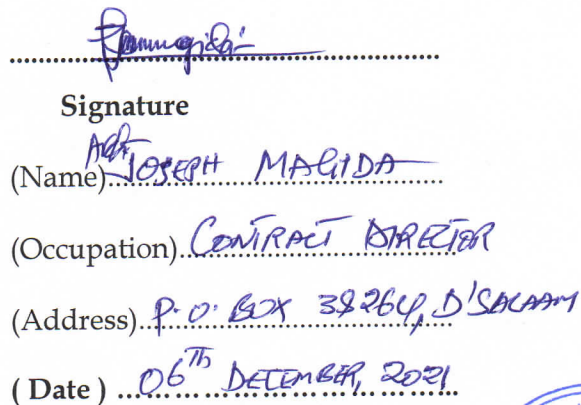 Signature
(Name) Arch. JOSEPH MAGIDA
(Occupation) CONTRACT DIRECTOR
(Address) P.O. BOX 38264, D'SALAAM
( Date ) 06TH DECEMBER, 2021